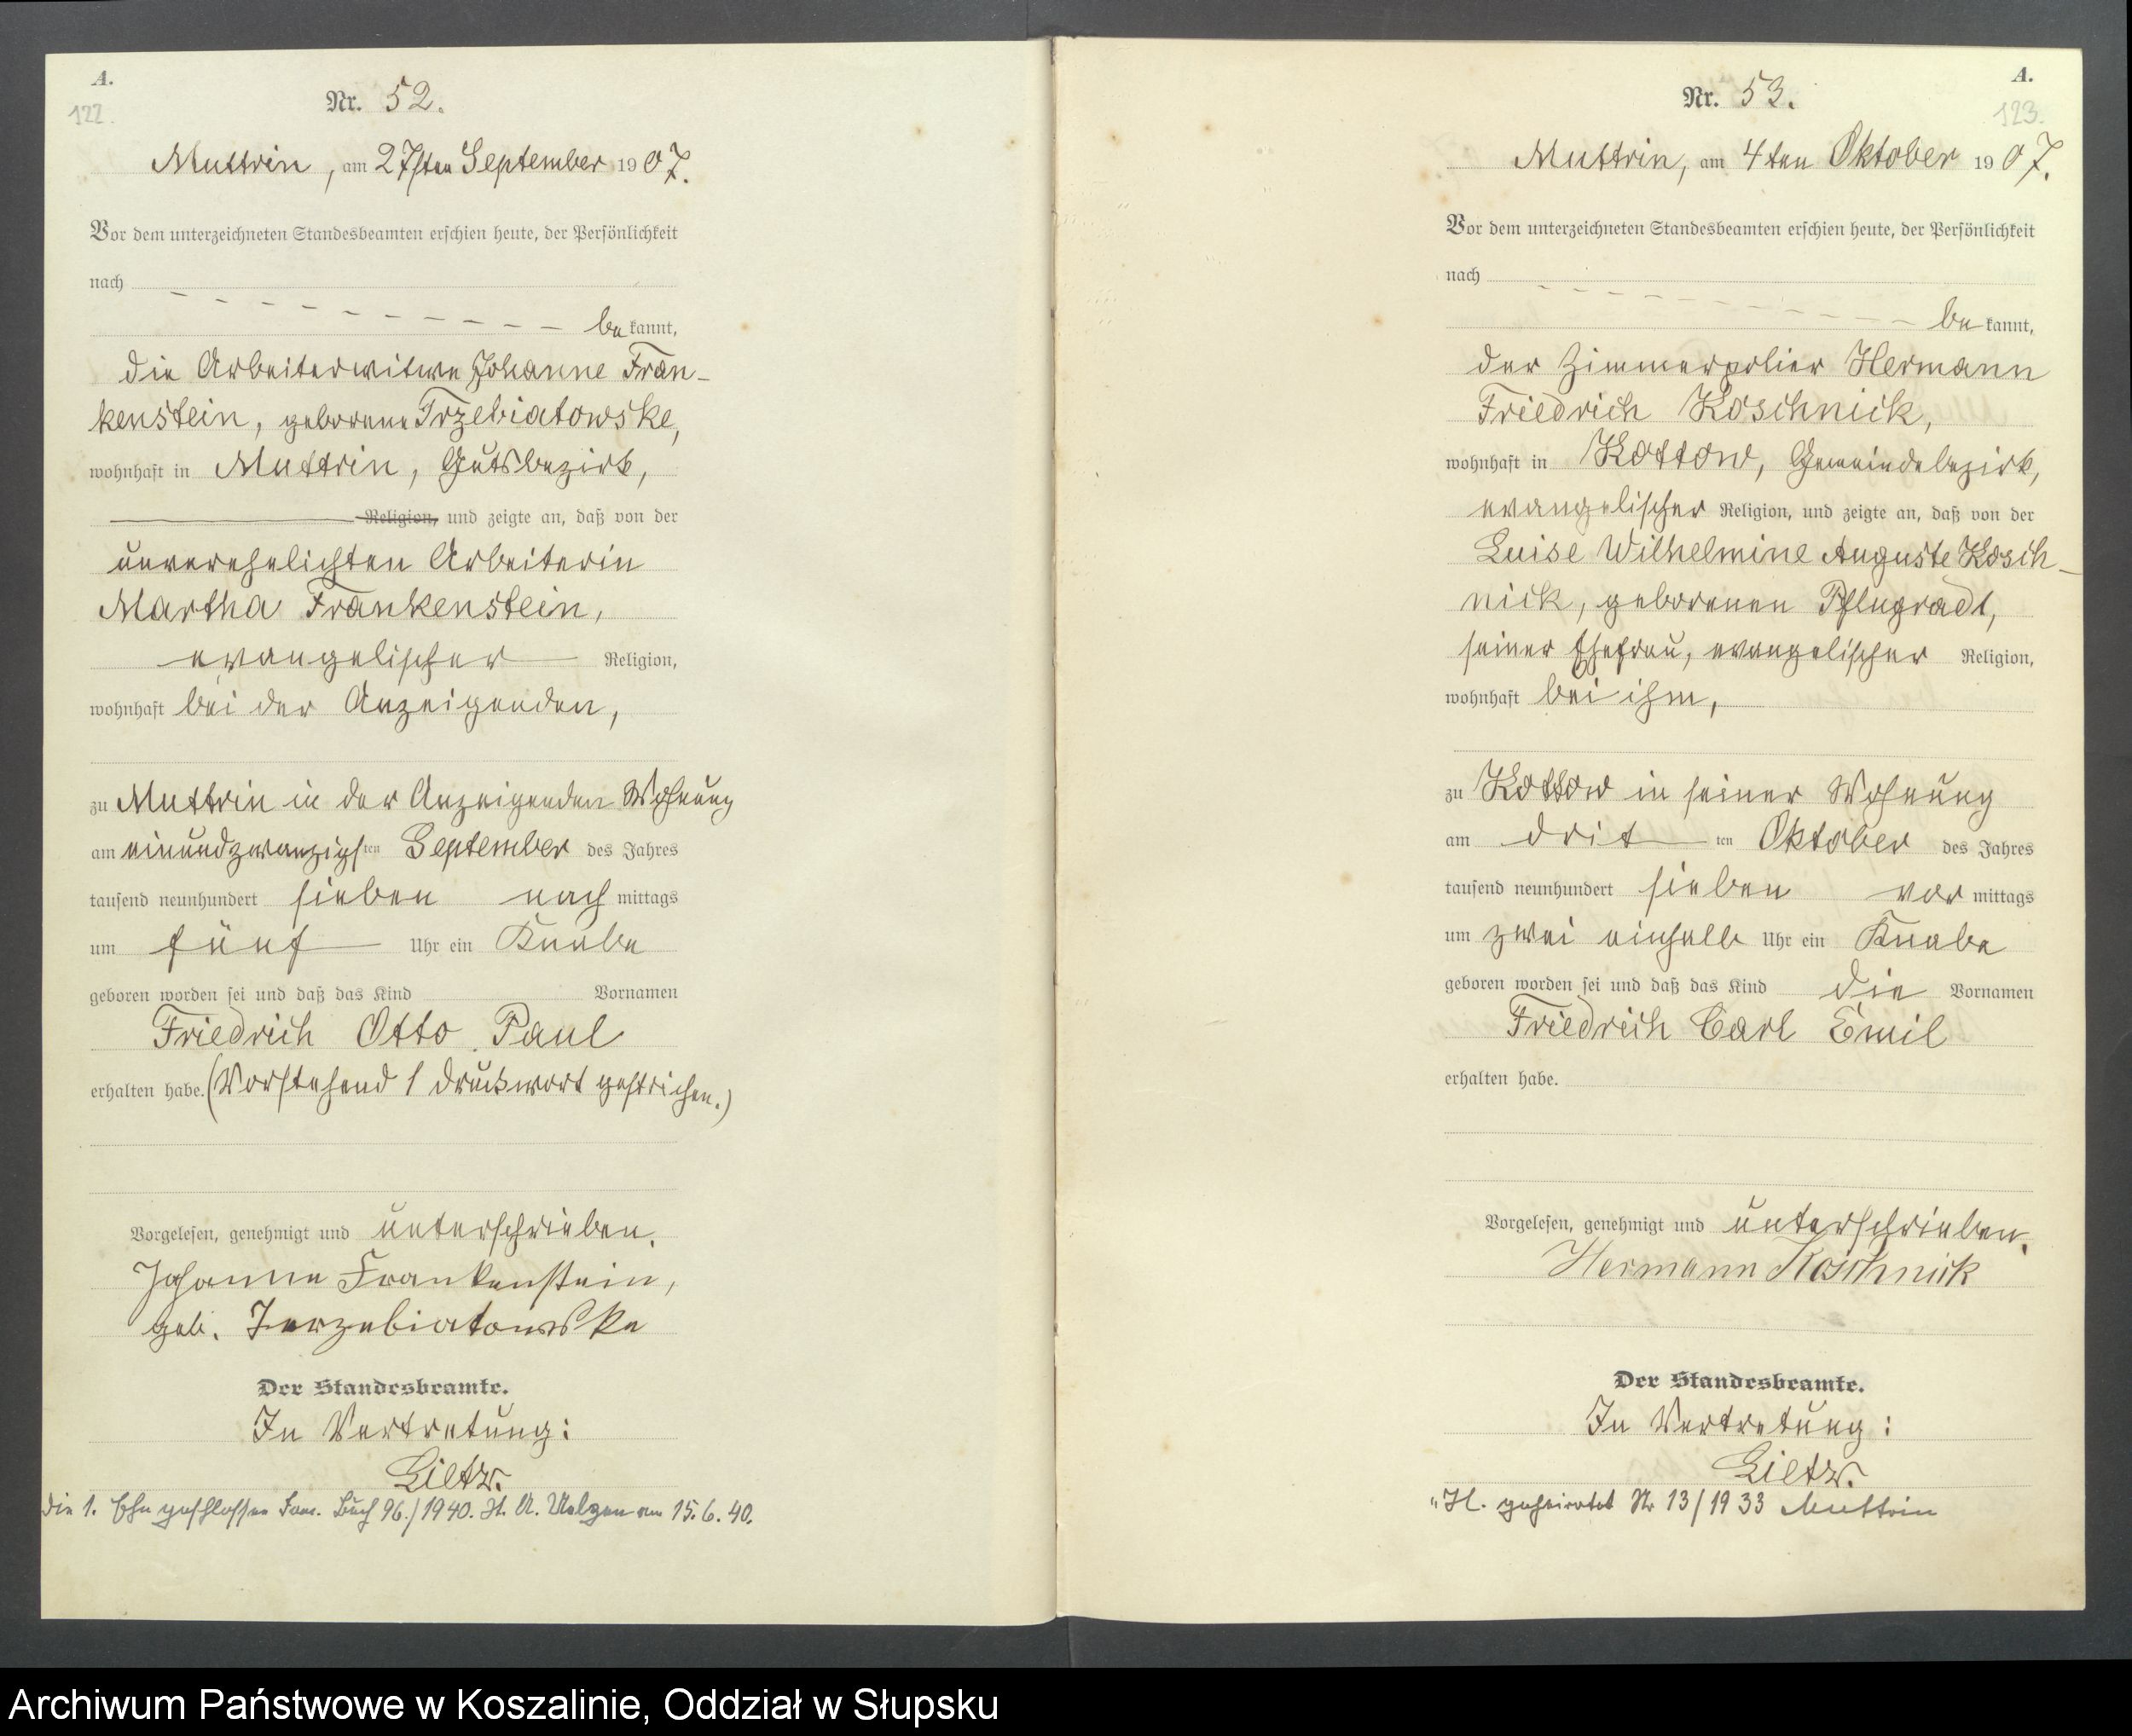 A.
122.
Nr. 52.
Muttrin, am 27sten September 1907.
Vor dem unterzeichneten Standesbeamten erschien heute, der Persönlichkeit
nach
bekannt,
die Arbeiterwitwe Johanne Fran-
kenstein, geborene Trzebiatowske,
wohnhaft in Muttrin, Gutsbezirk,
Religion, und zeigte an, daß von der
unverehelichten Arbeiterin
Martha Frankenstein,
evangelischer Religion,
wohnhaft bei der Anzeigenden,
zu Muttrin in der Anzeigenden Wohnung
am einundzwanzigsten September des Jahres
tausend neunhundert sieben nachmittags
um fünf Uhr ein Knabe
geboren worden sei und daß das Kind Vornamen
Friedrich Otto Paul
erhalten habe. (Vorstehend 1 Druckwort gestrichen.)
Vorgelesen, genehmigt und unterschrieben.
Johanne Frankenstein,
geb. Terzebiatowske
Der Standesbeamte.
In Vertretung:
Lietz.
Die 1. Ehe geschlossen Fam. Buch 96./1940. St. A. Uelzen am 15.6.40.
A.
123.
Nr. 53.
Muttrin, am 4ten Oktober 1907.
Vor dem unterzeichneten Standesbeamten erschien heute, der Persönlichkeit
nach
bekannt,
der Zimmerpolier Hermann
Friedrich Koschnick,
wohnhaft in Kottow, Gemeindebezirk,
evangelischer Religion, und zeigte an, daß von der
Luise Wilhelmine Auguste Kosch-
nick, geborenen Pflugradt,
seiner Ehefrau, evangelischer Religion,
wohnhaft bei ihm,
zu Kottow in seiner Wohnung
am dritten Oktober des Jahres
tausend neunhundert sieben vormittags
um zwei einhalb Uhr ein Knabe
geboren worden sei und daß das Kind die Vornamen
Friedrich Carl Emil
erhalten habe.
Vorgelesen, genehmigt und unterschrieben.
Hermann Koschnick
Der Standesbeamte.
In Vertretung:
Lietz.
geheiratet Nr 13/1933 Muttrin
Archiwum Państwowe w Koszalinie, Oddział w Słupsku